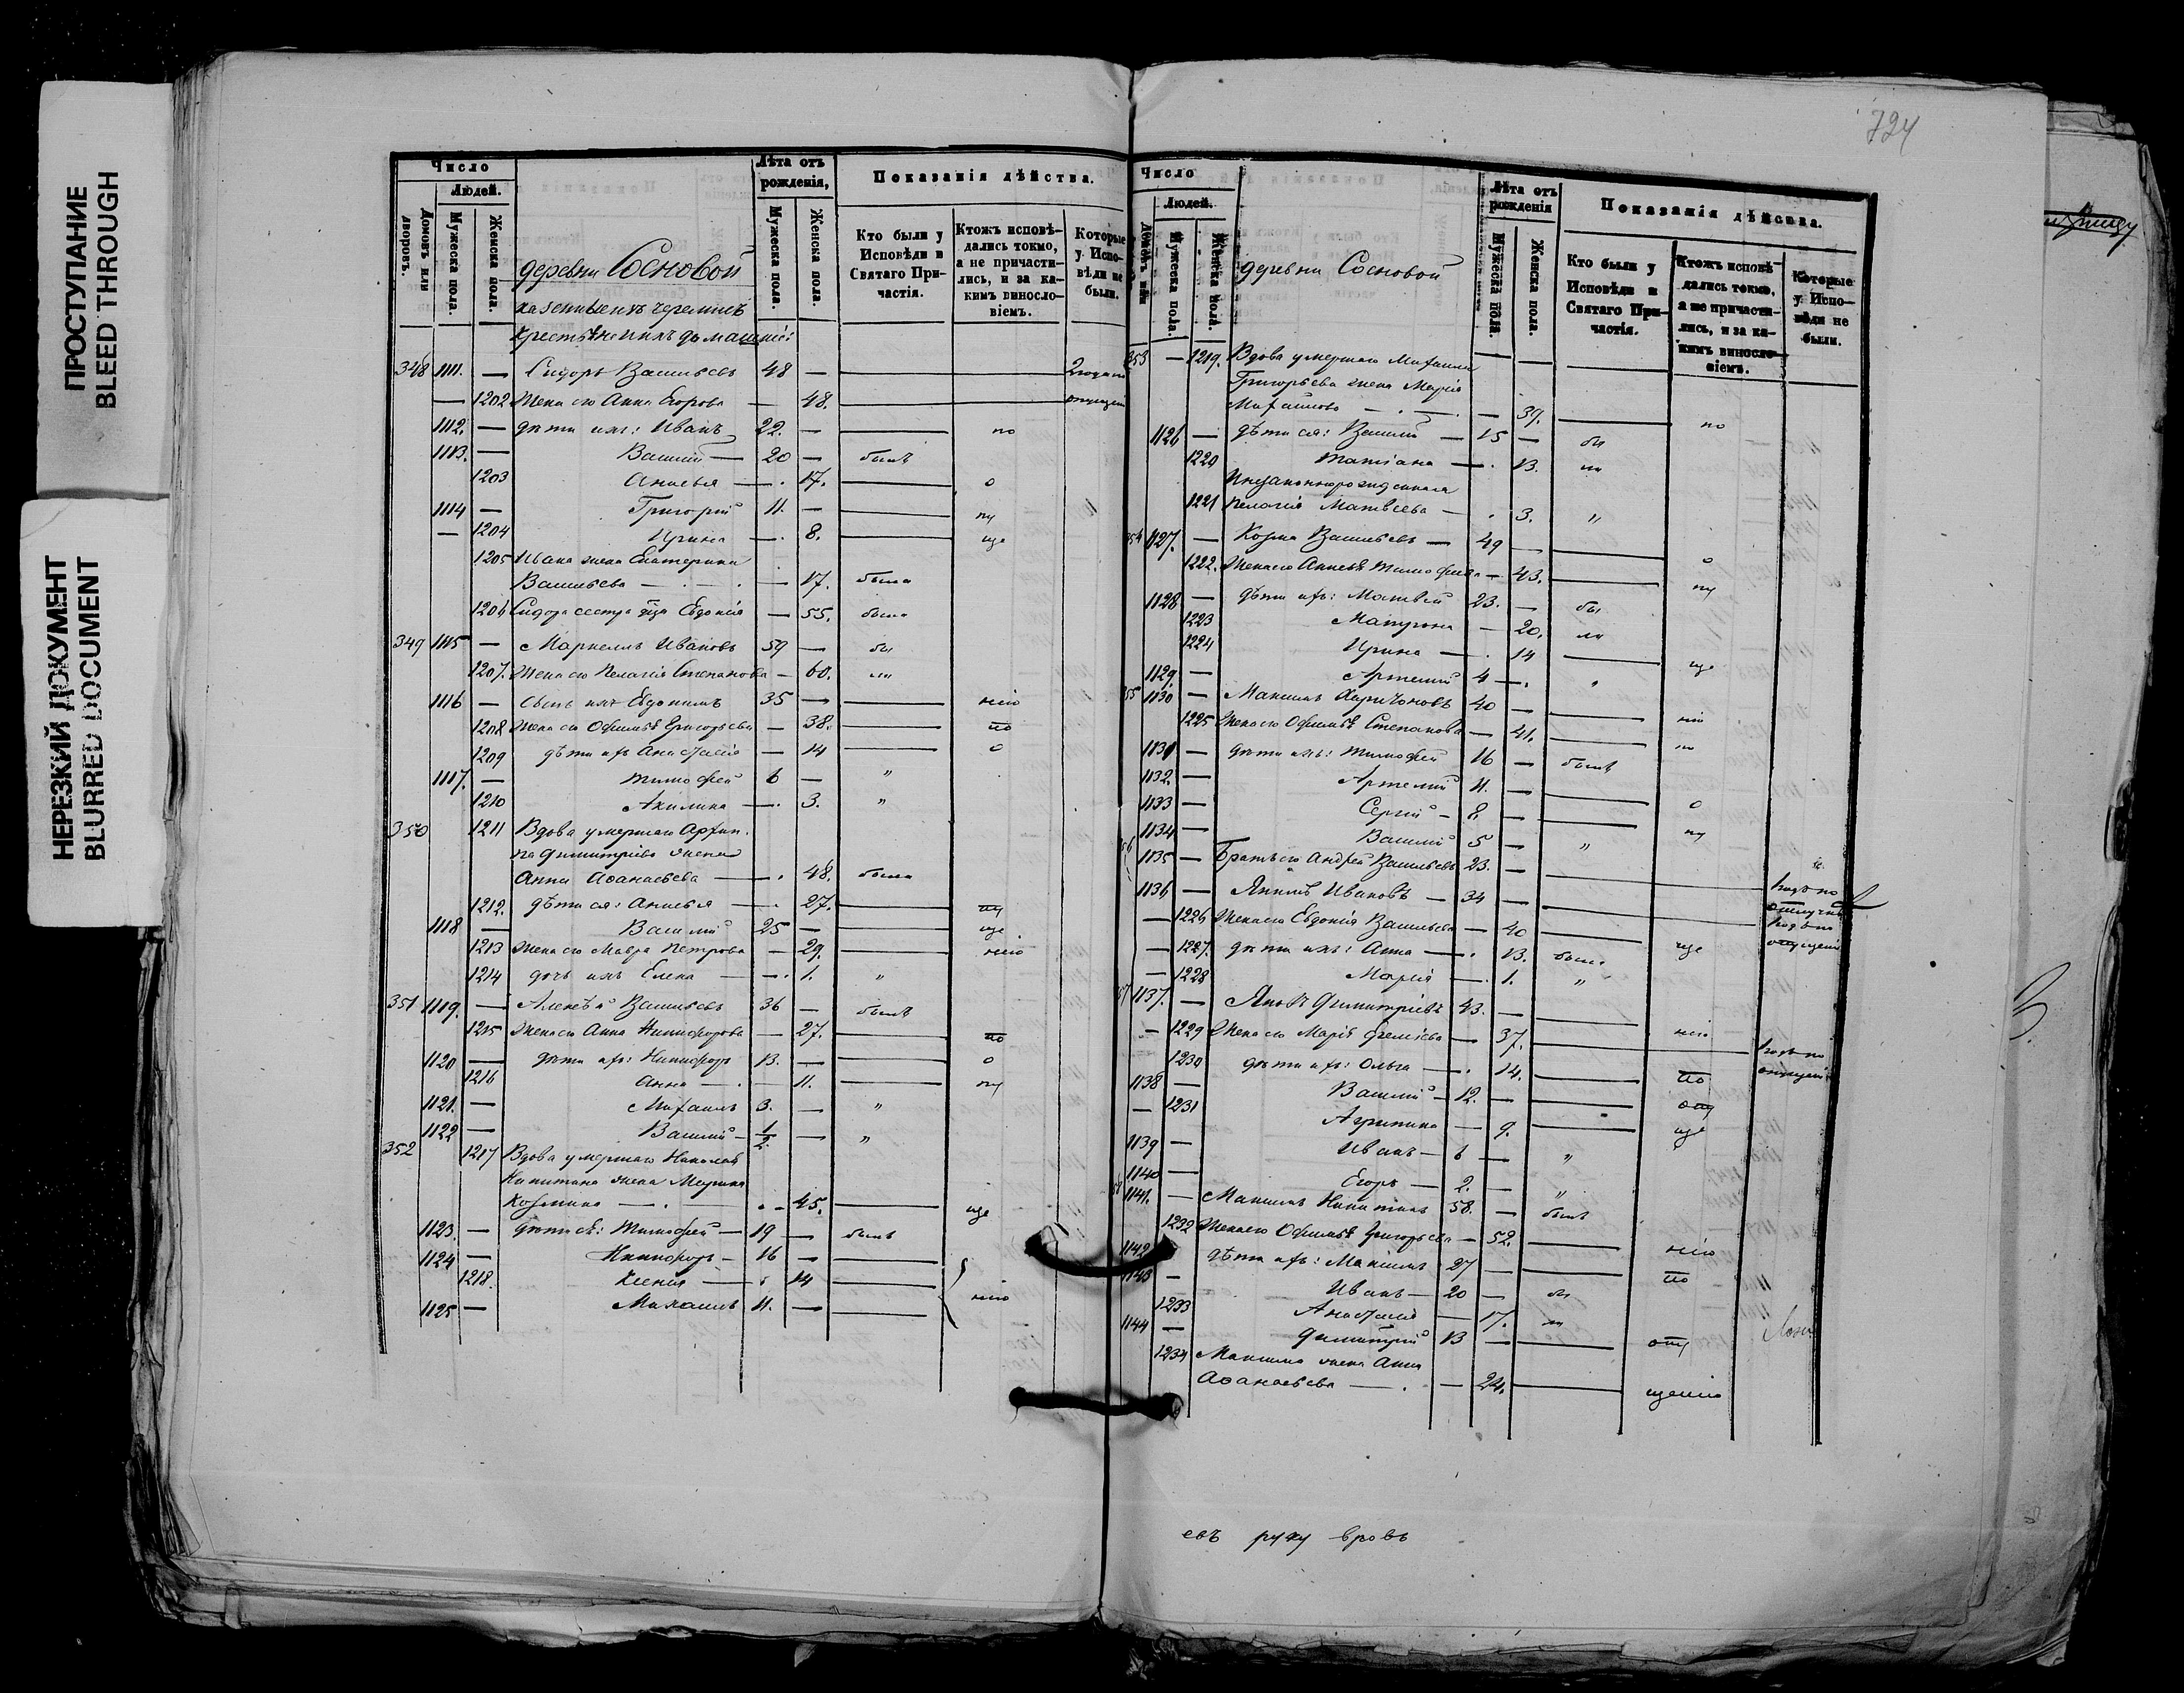 ПРОСТУПАНИЕ
BLEED THROUGH
НЕРЕЗКИЙ ДОКУМЕНТ
BLURRED DOCUMENT
Число
Людей.
Домовъ или дворовъ.
Мужеска пола.
Женска пола.
Лѣта отъ рожденія,
Мужеска пола.
Женска пола.
Показанія дѣйства.
Кто были у Исповѣди и Святаго Причастія.
Ктожъ исповѣдались токмо, а не причастились, и за какимъ винословіемъ.
Которые у Исповѣди не были.
деревни Сосновой
крестьяне ихъ домашніе:
348 1111. — Сидоръ Васильевъ 48 —
— 1202 Жена его Анна Егорова — 48.
1112. — дѣти ихъ: Иванъ 22. — по
1113. — Василій — 20 — былъ
1203 Анисья — 17. о
1114 — Григорій 11. — пу
— 1204 Ирина — 8. ще
1205 Ивана жена Екатерина
Васильева — 17. была
1206 Сидора сестра Евдокія — 55. была
349 1115 — Маркеллъ Ивановъ 59 — бы
1207. Жена его Пелагія Степанова — 60. ли
1116 — Сынъ ихъ Евдокимъ 35 — нію
1208 Жена его Офимья Григорьева — 38. по
1209 дѣти ихъ Анастасія — 14 о
1117. — Тимофей 6 — "
1210 Акилина — 3. "
350 1211 Вдова умершаго Архип
па Димитріева жена
Анна Аѳанасьева — 48. была
1212. дѣти ея: Анисья — 27. пу
1118 — Василій 25 — ще
1213 Жена его Мавра Петрова — 29. нію
1214 дочь ихъ Елена — 1. "
351 1119. — Алексѣй Васильевъ 36 — былъ
1215 Жена его Анна Никифорова — 27. по
1120 — дѣти ихъ: Никифоръ 13. — о
1216 Анна — 11. пу
1121. — Михаилъ 3. — "
1122 — Василій — 1/2 — "
352 1217 Вдова умершаго Николая
Никитина жена Марина
Козмина — 45. ще
1123. — дѣти ея: Тимофей — 19 — былъ
1124 — Никифоръ — 16 —
1218. Ксенія — 14 нію
1125 — Михаилъ 11. —
724
Число
Людей.
Домовъ или
Мужеска пола.
Женска пола.
Лѣта отъ рожденія
Мужеска пола.
Женска пола.
Показанія дѣйства.
Кто были у Исповѣди и Святаго Причастія.
Ктожъ исповѣдались токмо, а не причастились, и за какимъ винословіемъ.
Которые у Исповѣди не были.
деревни Сосновой
353 — 1219. Вдова умершаго Михаила
Григорьева жена Марія
Михайлова — 39. по
1126 — дѣти ея: Василій — 15 — бы
1220 Татіана — 13. ли
1221 Пелагія Матвѣева — 3. "
354 1127. — Козма Васильевъ — 49 — о
1222. Жена его Анисья Тимофеева — 43. пу
1128 — дѣти ихъ: Матвѣй 23. — бы
1223 Матрона — 20. ли
1224 Ирина — 14 ще
1129. — Артемій 4 — "
55 1130 — Максимъ Харитоновъ 40 — нію
1225 Жена его Офимья Степанова — 41. по
1131 — дѣти ихъ: Тимофей 16 — былъ
1132. — Артемій 11. — о
1133 — Сергій — 8. — пу
1134 — Василій 5 — "
1135 — Братъ его Андрей Васильевъ 23. — Годъ по отлучкѣ
1136 — Якимъ Ивановъ — 34 — Годъ по опущенію
— 1226 Жена его Евдокія Васильева — 40 ще
— 1227. дѣти ихъ: Анна — 13. была
— 1228 Марія — 1. "
57 1137. — Яковъ Димитріевъ 43. — нію
— 1229 Жена его Марія — 37. Годъ по опущенію
1230 дѣти ихъ: Ольга — 14. по
1138 — Василій — 12. — опу
— 1231 Агрипина — 9. ще
1139 — Иванъ — 6 — "
1140 — Егоръ — 2. — "
1141. — Максимъ Никитинъ 58. — былъ
1232 Жена его Офимья Григорьева — 52. нію
1142 дѣти ихъ: Максимъ 27 — по
1143 — Иванъ — 20 — бы
1233 Анастасія — 17. ли
1144 — Димитрій 13 — опу
1234 Максима жена Анна
Аѳанасьева — 24. щенію
евъ руку вровъ